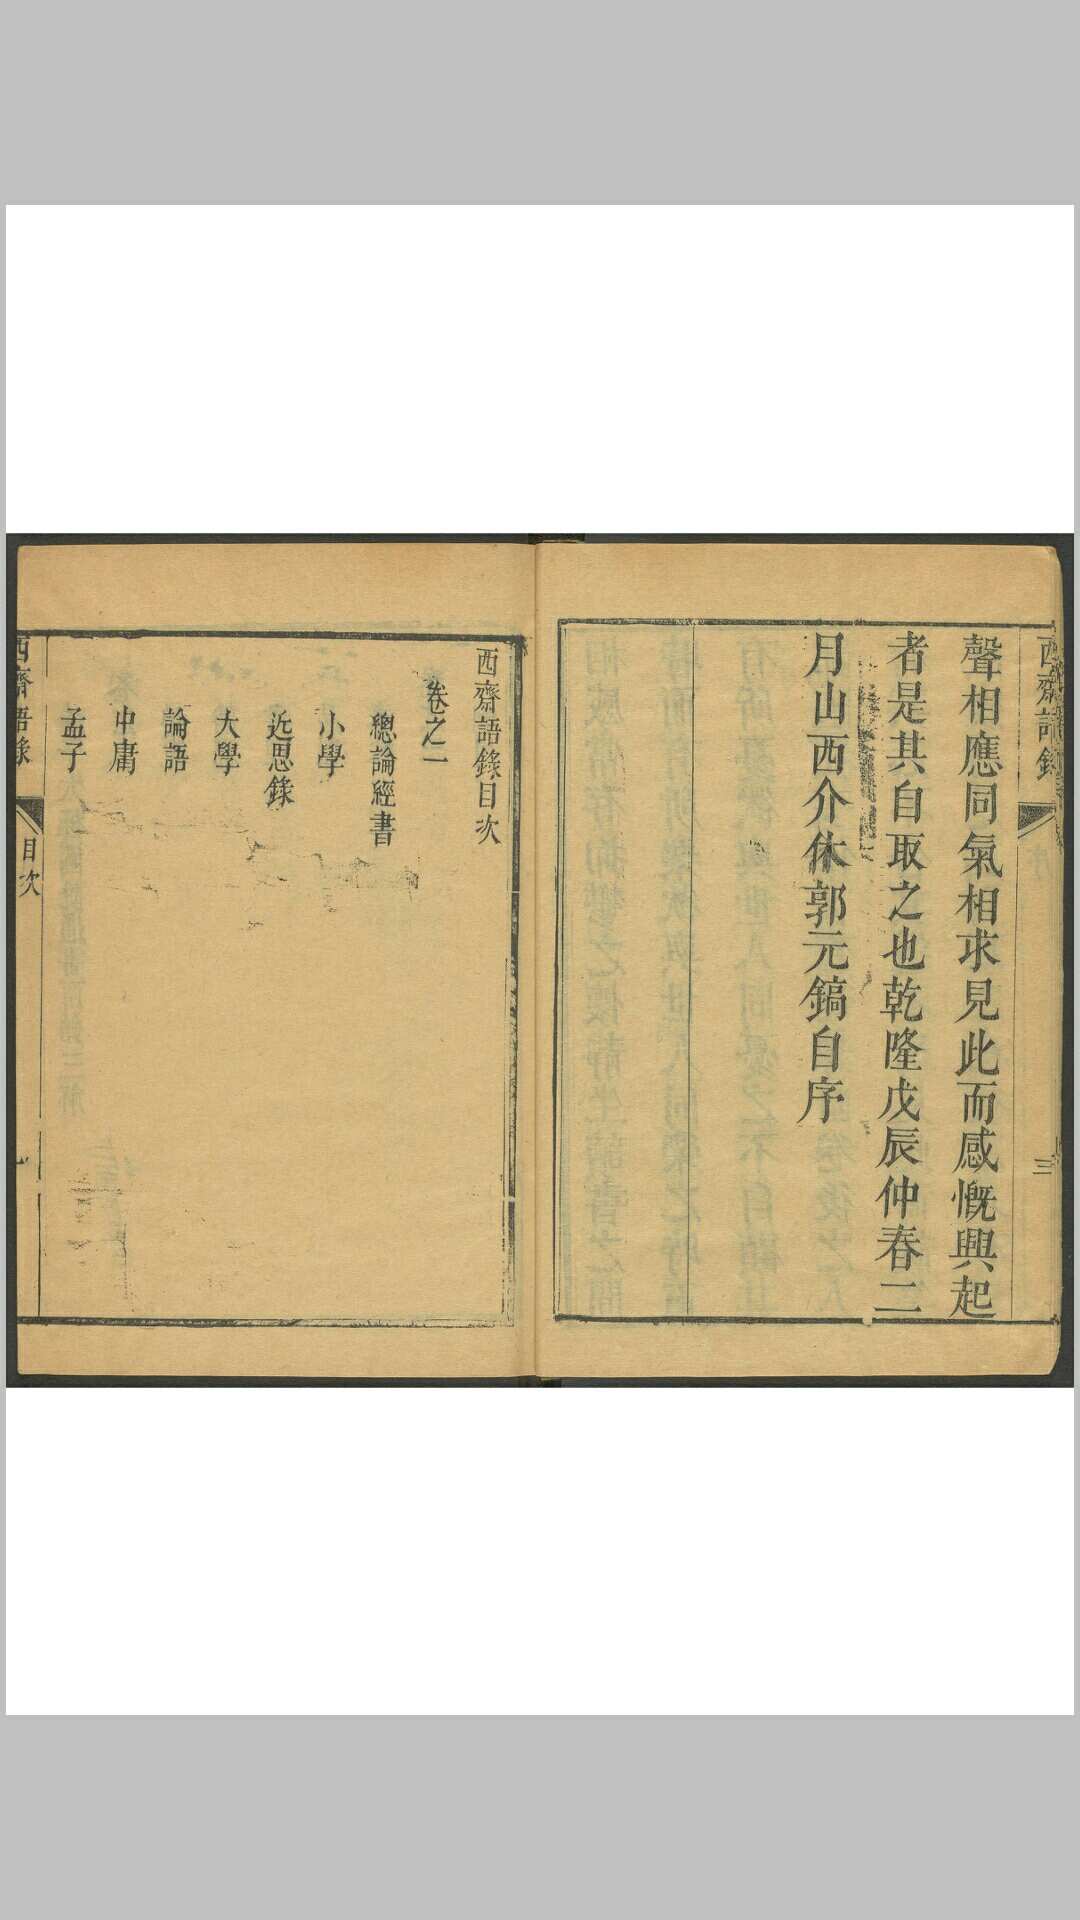 西齋語錄
三
聲相應同氣相求見此而感慨興起
者是其自取之也乾隆戊辰仲春二
月山西介休郭元鎬自序
西齋語錄目次
卷之一
總論經書
小學
近思錄
大學
論語
中庸
孟子
西齋語錄
目次